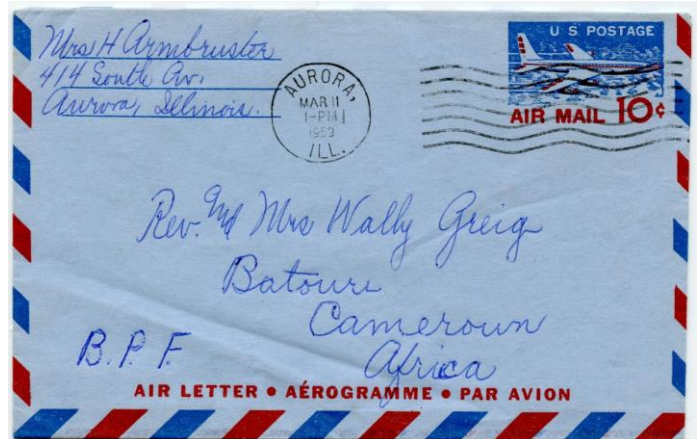 Mrs H Armbruster
414 South Av.
Aurora, Illinois.
AURORA,
MAR 11
1-PM
1959
ILL.
U S POSTAGE
AIR MAIL 10¢
Rev. and Mrs Wally Greig
Batouri
Cameroun
Africa
B.P.F.
AIR LETTER • AÉROGRAMME • PAR AVION